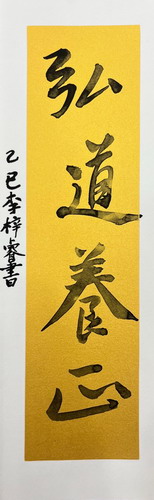 弘道養正
乙巳李梓睿書